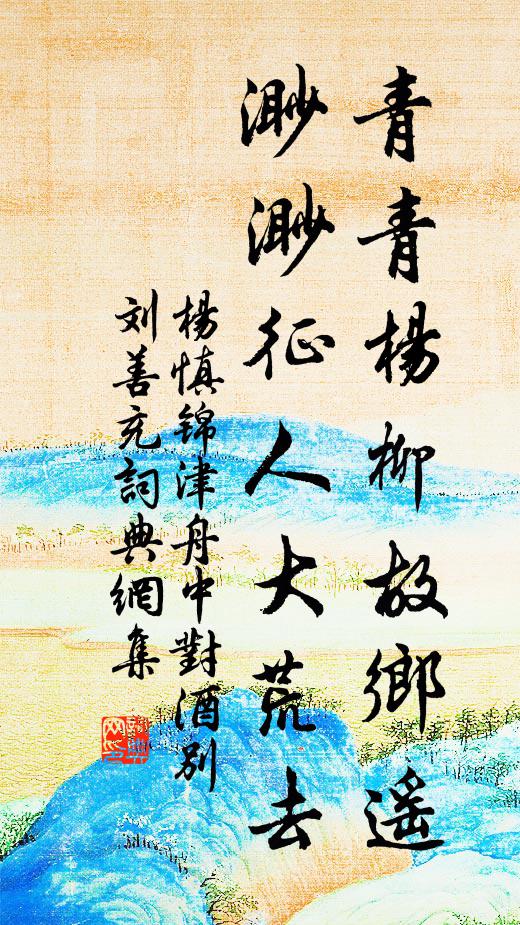 青青楊柳故鄉遥
渺渺征人大荒去
楊慎锦津舟中對酒別
刘善充詞典網集